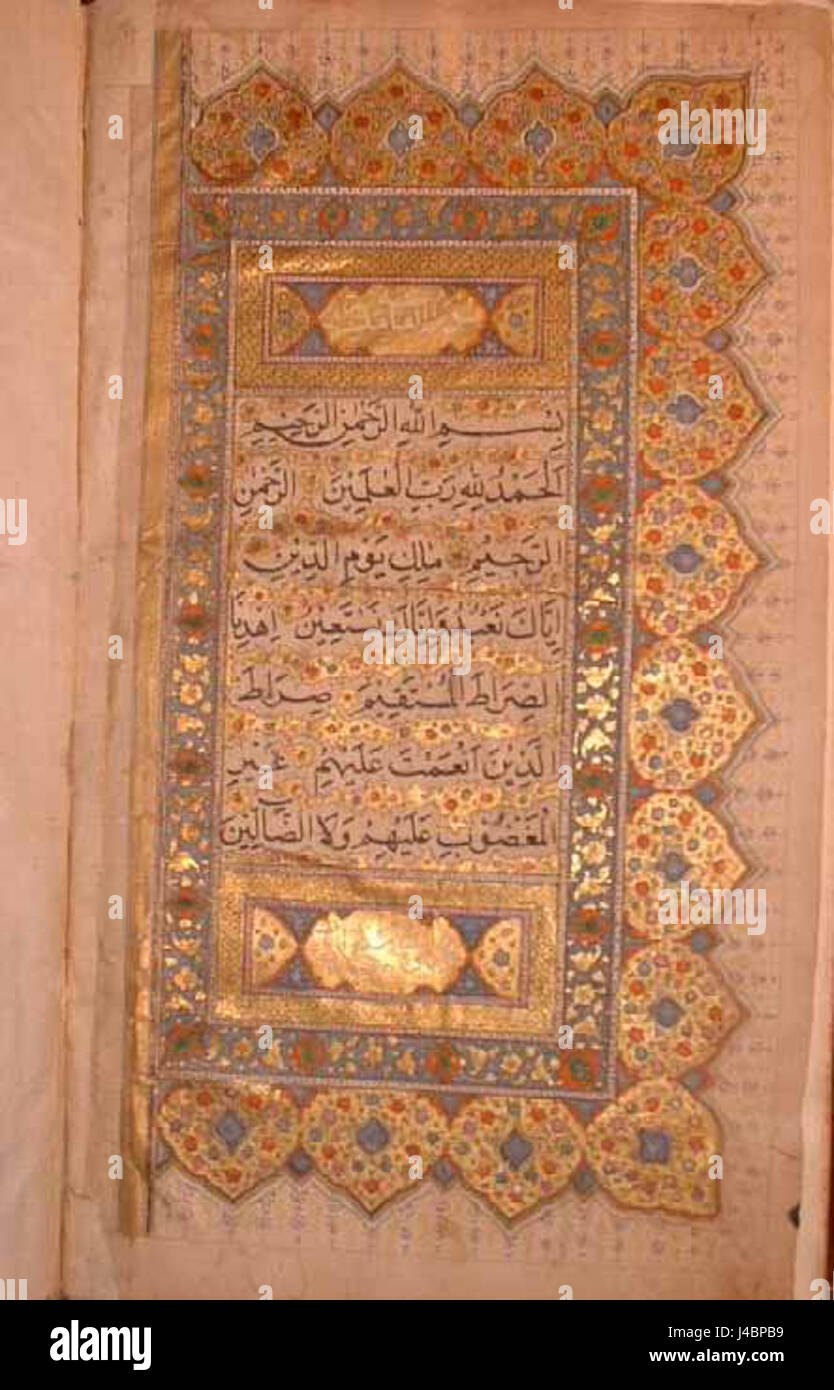 بِسْمِ اللهِ الرَّحْمٰنِ الرَّحِيْمِ
اَلْحَمْدُ لِلّٰهِ رَبِّ الْعٰلَمِيْنَ الرَّحْمٰنِ
الرَّحِيْمِ مٰلِكِ يَوْمِ الدِّيْنِ
اِيَّاكَ نَعْبُدُ وَاِيَّاكَ نَسْتَعِيْنُ اِهْدِنَا
الصِّرَاطَ الْمُسْتَقِيْمَ صِرَاطَ
الَّذِيْنَ اَنْعَمْتَ عَلَيْهِمْ غَيْرِ
الْمَغْضُوْبِ عَلَيْهِمْ وَلَا الضَّآلِّيْنَ
a alamy stock photo
alamy
Image ID: J4BPB9
www.alamy.com